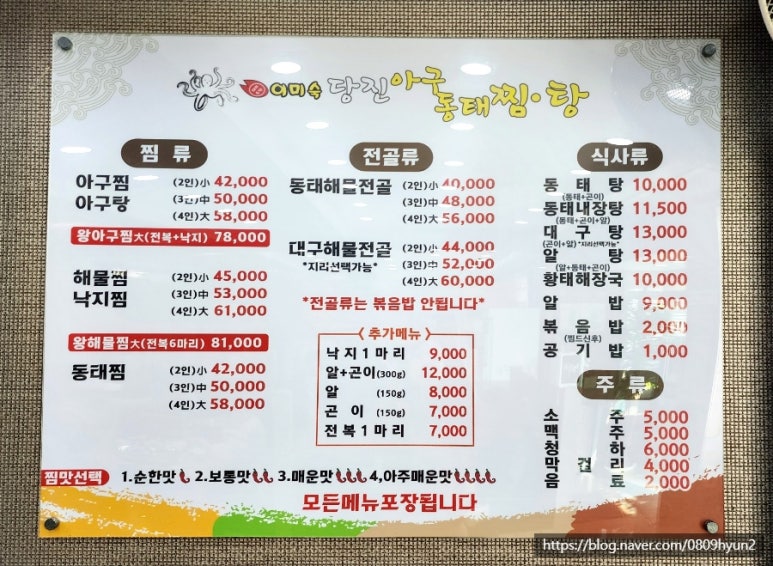 어미숙 당진아구동태찜·탕
찜 류
아구찜 (2인)小 42,000
아구탕 (3인)中 50,000
(4인)大 58,000
왕아구찜大(전복+낙지) 78,000
해물찜 (2인)小 45,000
낙지찜 (3인)中 53,000
(4인)大 61,000
왕해물찜大(전복6마리) 81,000
동태찜 (2인)小 42,000
(3인)中 50,000
(4인)大 58,000
전골류
동태해물전골 (2인)小 40,000
(3인)中 48,000
(4인)大 56,000
대구해물전골 (2인)小 44,000
*지리선택가능* (3인)中 52,000
(4인)大 60,000
*전골류는 볶음밥 안됩니다*
〈 추가메뉴 〉
낙지1마리 9,000
알+곤이(300g) 12,000
알 (150g) 8,000
곤이 (150g) 7,000
전복1마리 7,000
식사류
동태탕 10,000
(동태+곤이)
동태내장탕 11,500
(동태+곤이+알)
대구탕 13,000
(곤이+알) *지리선택가능*
알탕 13,000
(알+동태+곤이)
황태해장국 10,000
알밥 9,000
볶음밥 2,000
(찜드신후)
공기밥 1,000
주 류
소주 5,000
맥주 5,000
청하 6,000
막걸리 4,000
음료 2,000
찜맛선택 1.순한맛 2.보통맛 3.매운맛 4,아주매운맛
모든메뉴포장됩니다
https://blog.naver.com/0809hyun2